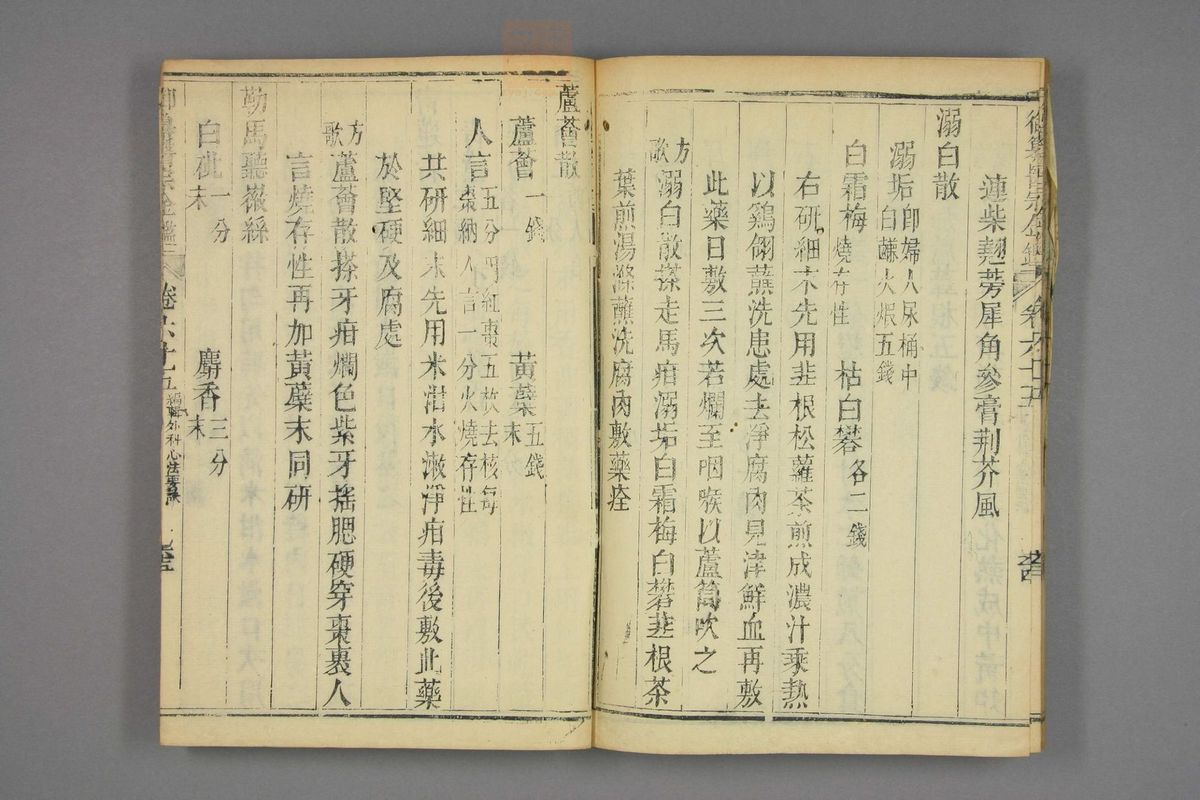 連柴翹蒡犀角參膏荆芥風
溺白散
溺垢即婦人尿桶中白鹻火煆五錢
白霜梅燒存性 枯白礬各二錢
右研細末先用韭根松蘿茶煎成濃汁乘熱
以鷄翎蘸洗患處去淨腐肉見津鮮血再敷
此藥日敷三次若爛至咽喉以蘆筒吹之
方歌 溺白散搽走馬疳溺垢白霜梅白礬韭根茶
葉煎湯滌蘸洗腐肉敷藥痊
蘆薈散
蘆薈一錢 黃蘗末五錢
人言五分用紅棗五枚去核每棗納人言一分火燒存性
共研細末先用米泔水漱淨疳毒後敷此藥
於堅硬及腐處
方歌 蘆薈散搽牙疳爛色紫牙搖腮硬穿棗裹人
言燒存性再加黃蘗末同研
勒馬聽嶶絲
白砒末一分 麝香末三分
御纂醫宗金鑑 卷六十五 編輯外科心法要訣